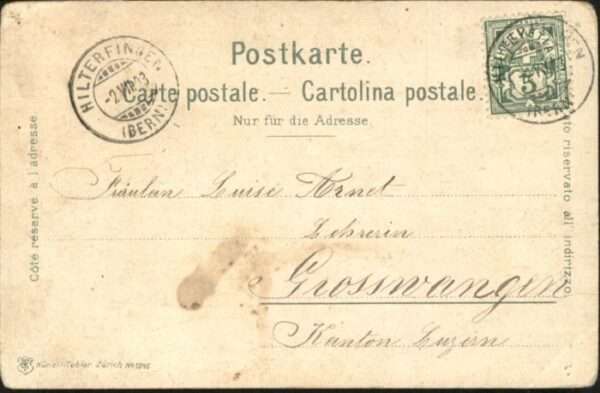 Postkarte.
Carte postale. — Cartolina postale.
Nur für die Adresse.
HILTERFINGEN
-2.VII.03
(BERN)
5
Côté réservé à l'adresse.
Lato riservato all' indirizzo.
Fräulein Luise Arnet
Lehrerin
Grosswangen
Kanton Luzern
Künzli-Tobler Zürich